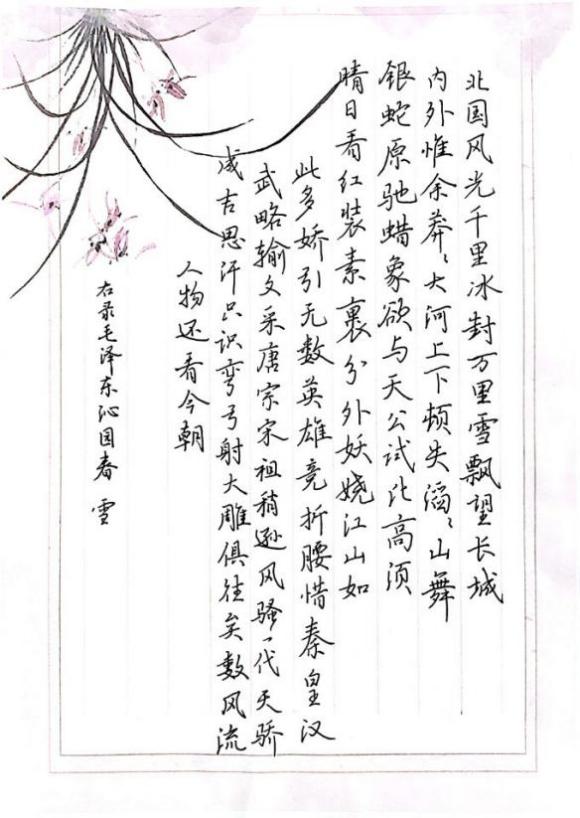 北国风光千里冰封万里雪飘望长城
内外惟余莽〻大河上下顿失滔〻山舞
银蛇原驰蜡象欲与天公试比高须
晴日看红装素裹分外妖娆江山如
此多娇引无数英雄竞折腰惜秦皇汉
武略输文采唐宗宋祖稍逊风骚一代天骄
成吉思汗只识弯弓射大雕俱往矣数风流
人物还看今朝
右录毛泽东沁园春 雪